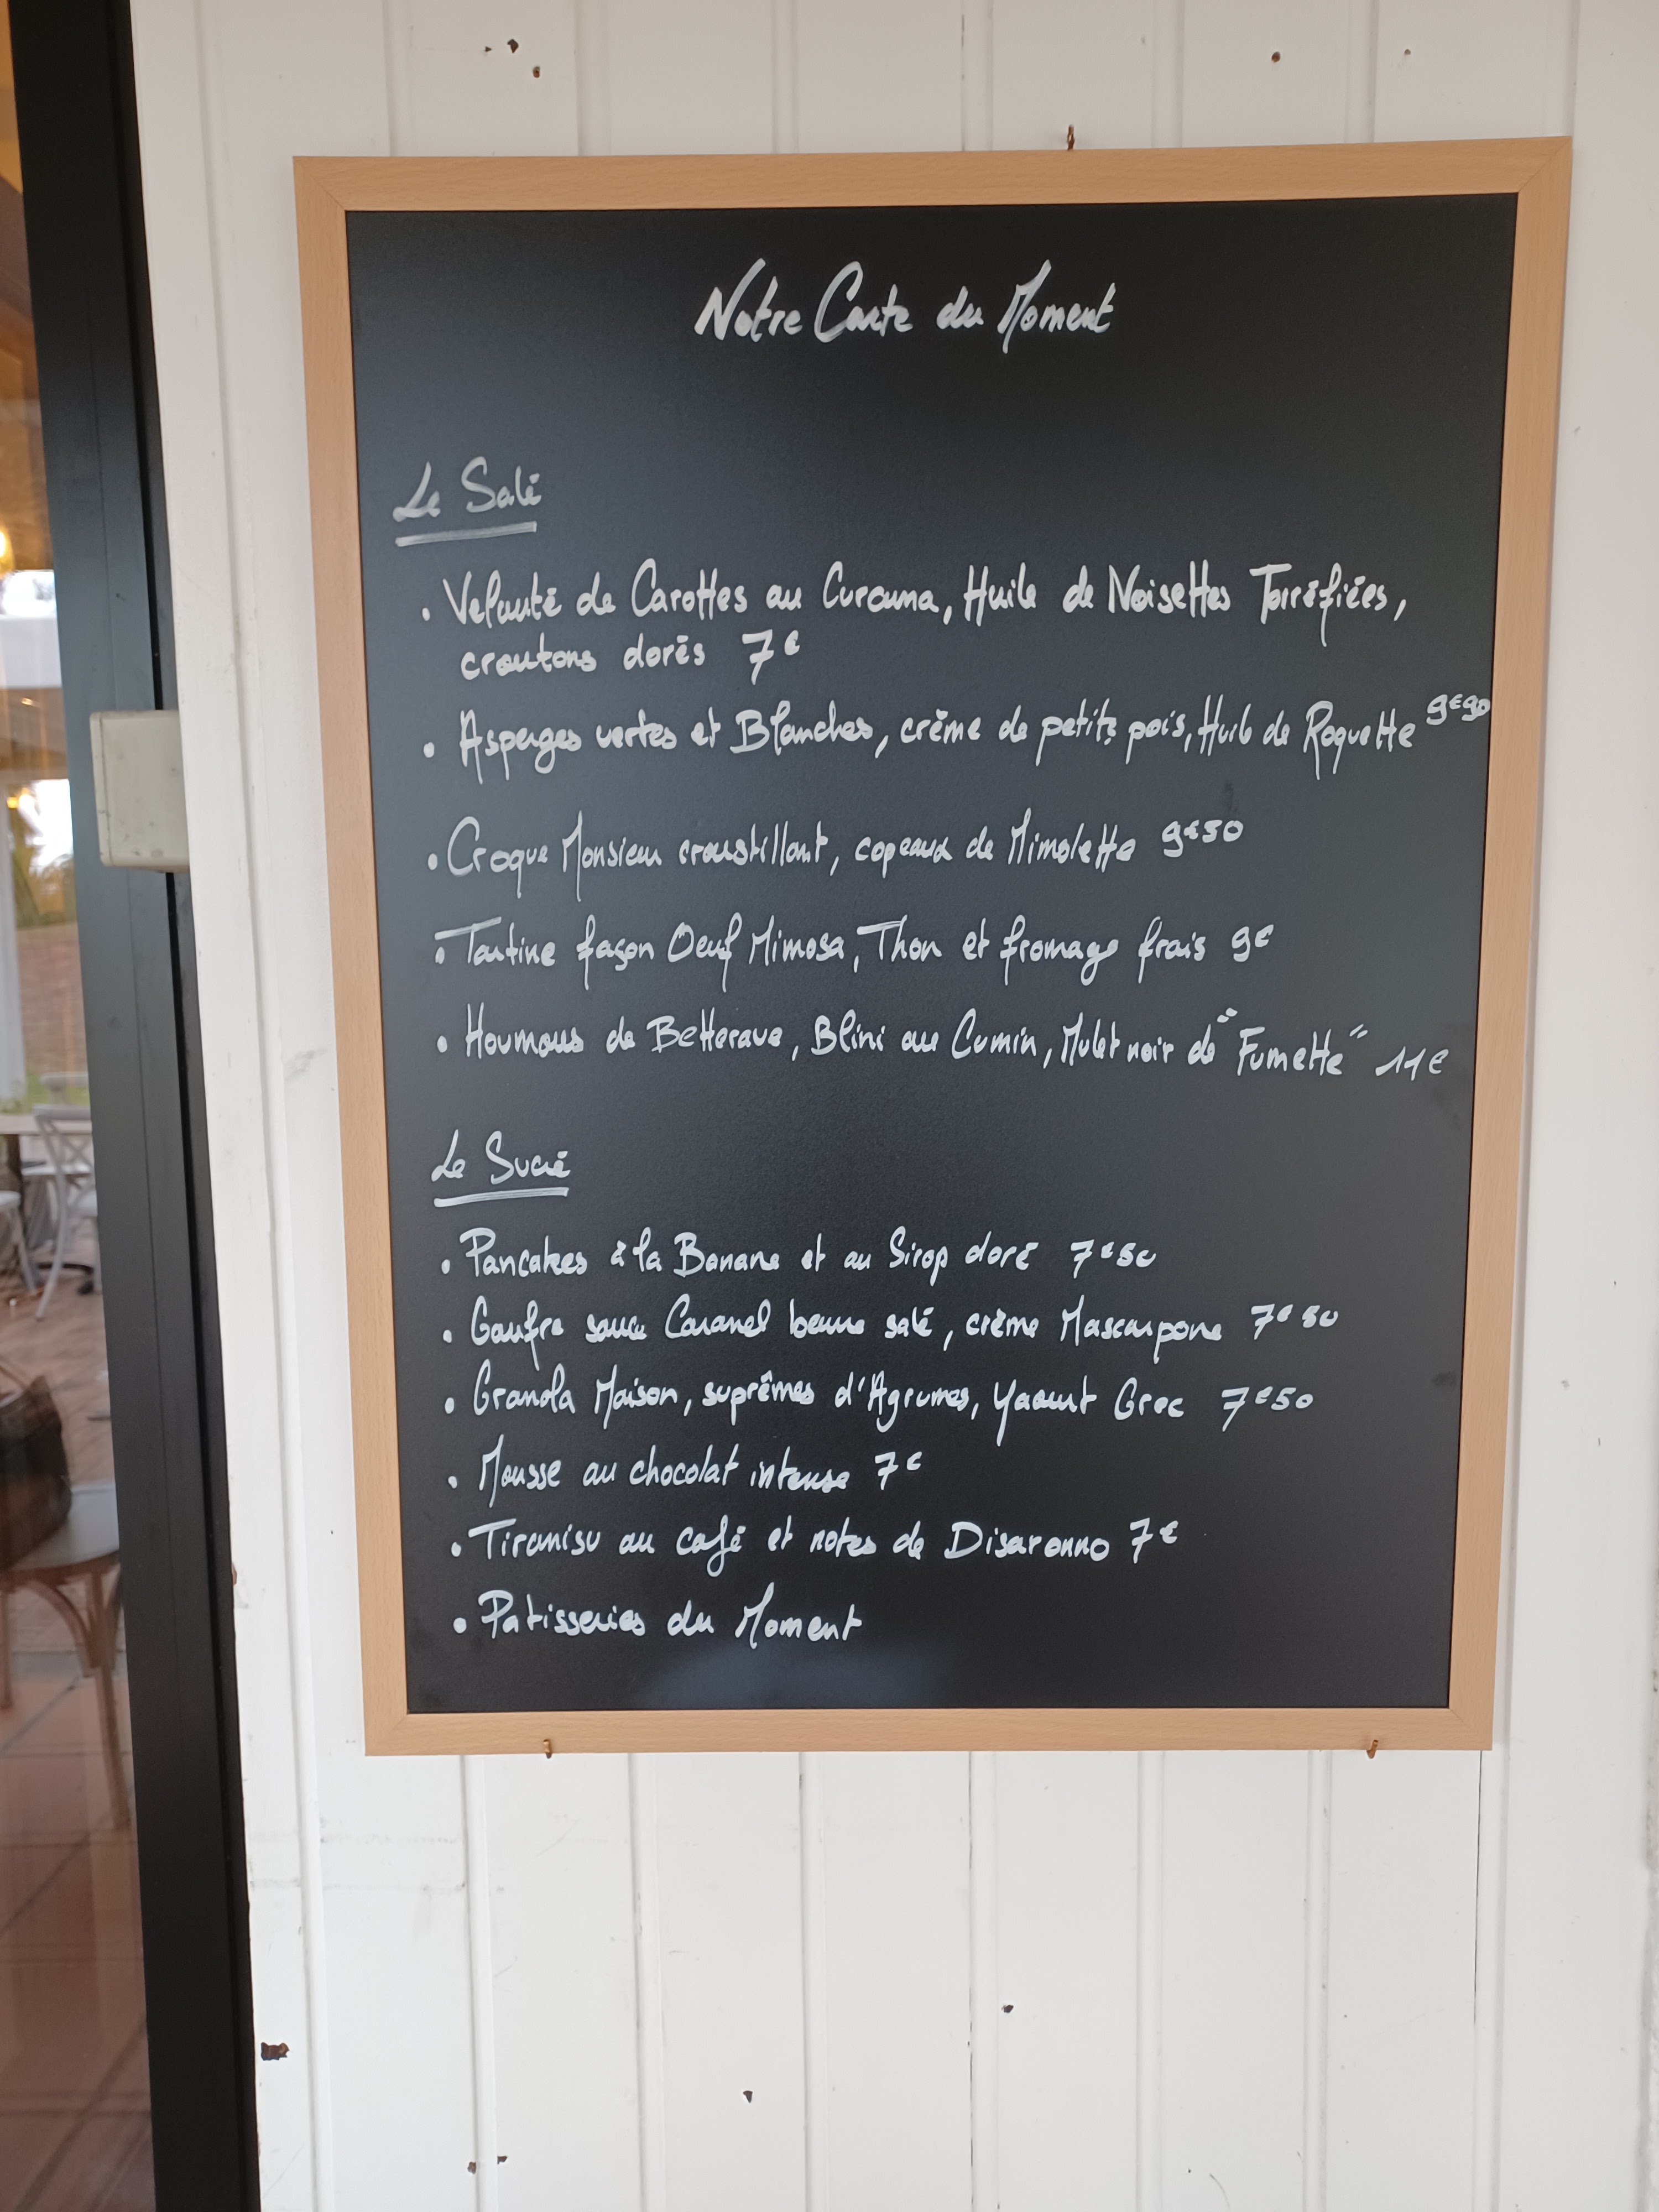 Notre Carte du Moment
Le Salé
• Velouté de Carottes au Curcuma, Huile de Noisettes Torréfiées,
croutons dorés 7€
• Asperges vertes et Blanches, crème de petits pois, Huile de Roquette 9€90
• Croque Monsieur croustillant, copeaux de Mimolette 9€50
• Tartine façon Oeuf Mimosa, Thon et fromage frais 9€
• Houmous de Betterave, Blini au Cumin, Mulet noir de "Fumette" 11€
Le Sucré
• Pancakes à la Banane et au Sirop doré 7€50
• Gaufre sauce Caramel beurre salé, crème Mascarpone 7€50
• Granola Maison, suprêmes d'Agrumes, Yaourt Grec 7€50
• Mousse au chocolat intense 7€
• Tiramisu au café et notes de Disaronno 7€
• Patisseries du Moment